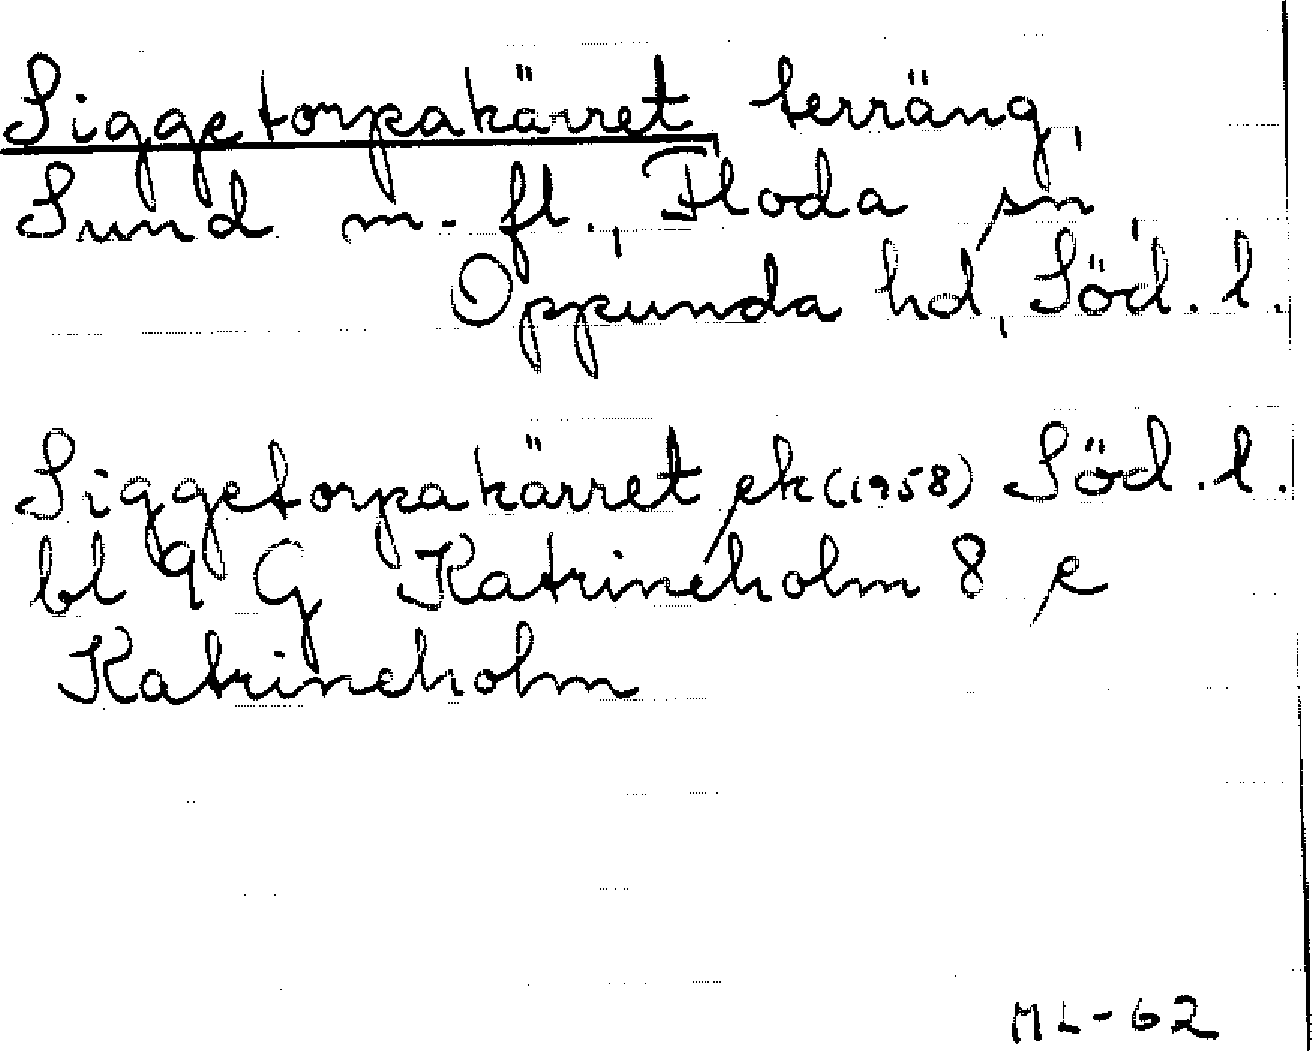 Siggetorpakärret, terräng,
Sund m. fl., Floda sn,
Oppunda hd, Söd. l.
Siggetorpakärret ek (1958) Söd. l.
bl 9 G Katrineholm 8 e
Katrineholm
ML-62